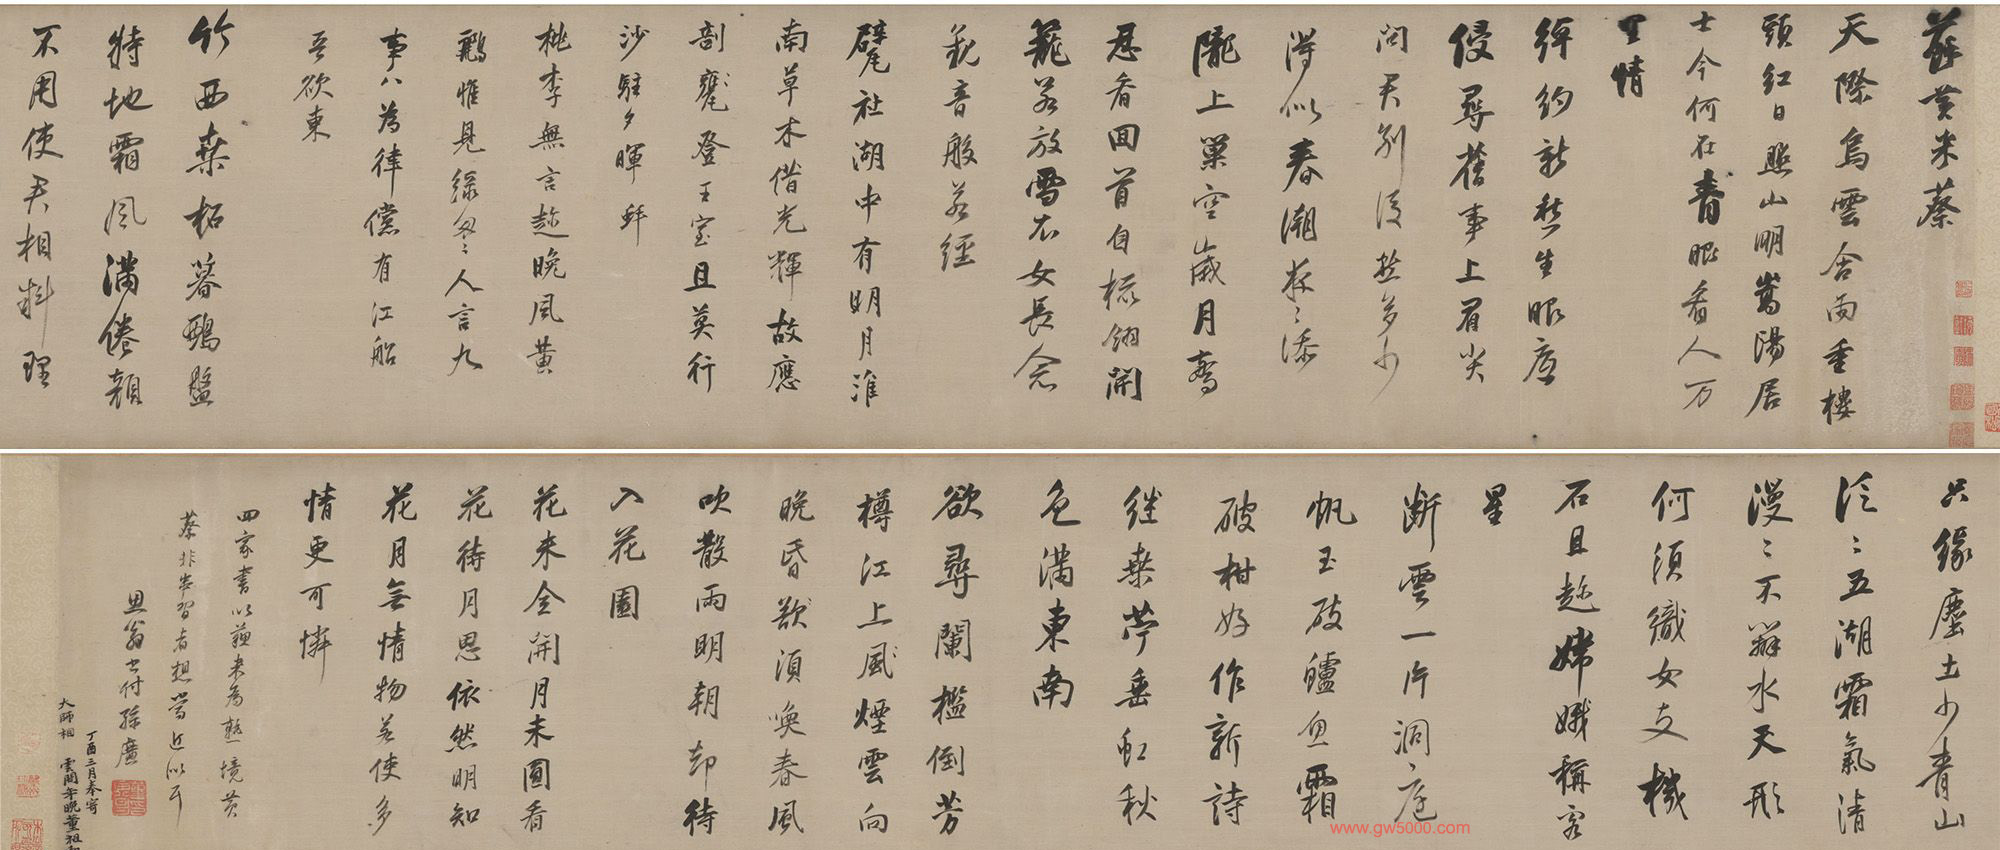 蘇黃米蔡
天際烏雲含雨重樓
頭紅日照山明嵩陽居
士今何在青眼看人万
里情
綽約新嬌生眼底
侵尋舊事上眉尖
問君別後愁多少
得似春潮夜〻添
隴上巢空歲月驚
忍看回首自梳翎開
籠若放雪衣女長念
觀音般若經
甓社湖中有明月淮
南草木借光輝故應
剖蠬登王室且莫行
沙駐夕暉蚌
桃李無言趂晚風黃
鸝惟見綠匆〻人言九
事八為律儻有江船
吾欲東
竹西桑柘暮鴉盤
特地霜風滿倦顏
不用使君相料理
只緣塵土少青山
泛〻五湖霜氣清
漫〻不辨水天形
何須織女支機
石且趂嫦娥稱客
星
斷雲一片洞庭
帆玉破鱸魚霜
破柑好作新詩
继桑苧垂虹秋
色滿東南
欲尋闌檻倒芳
樽江上風煙雲向
晚昏欲須喚春風
吹散雨明朝却待
入花園
花未全開月未圓看
花待月思依然明知
花月無情物若使多
情更可憐
四家書以蘇米為熟境黃
蔡非專習者想當近似耳
思翁書付孫廣
丁酉三月奉寄
大師相 雲間年晚董祖和
www.gw5000.com